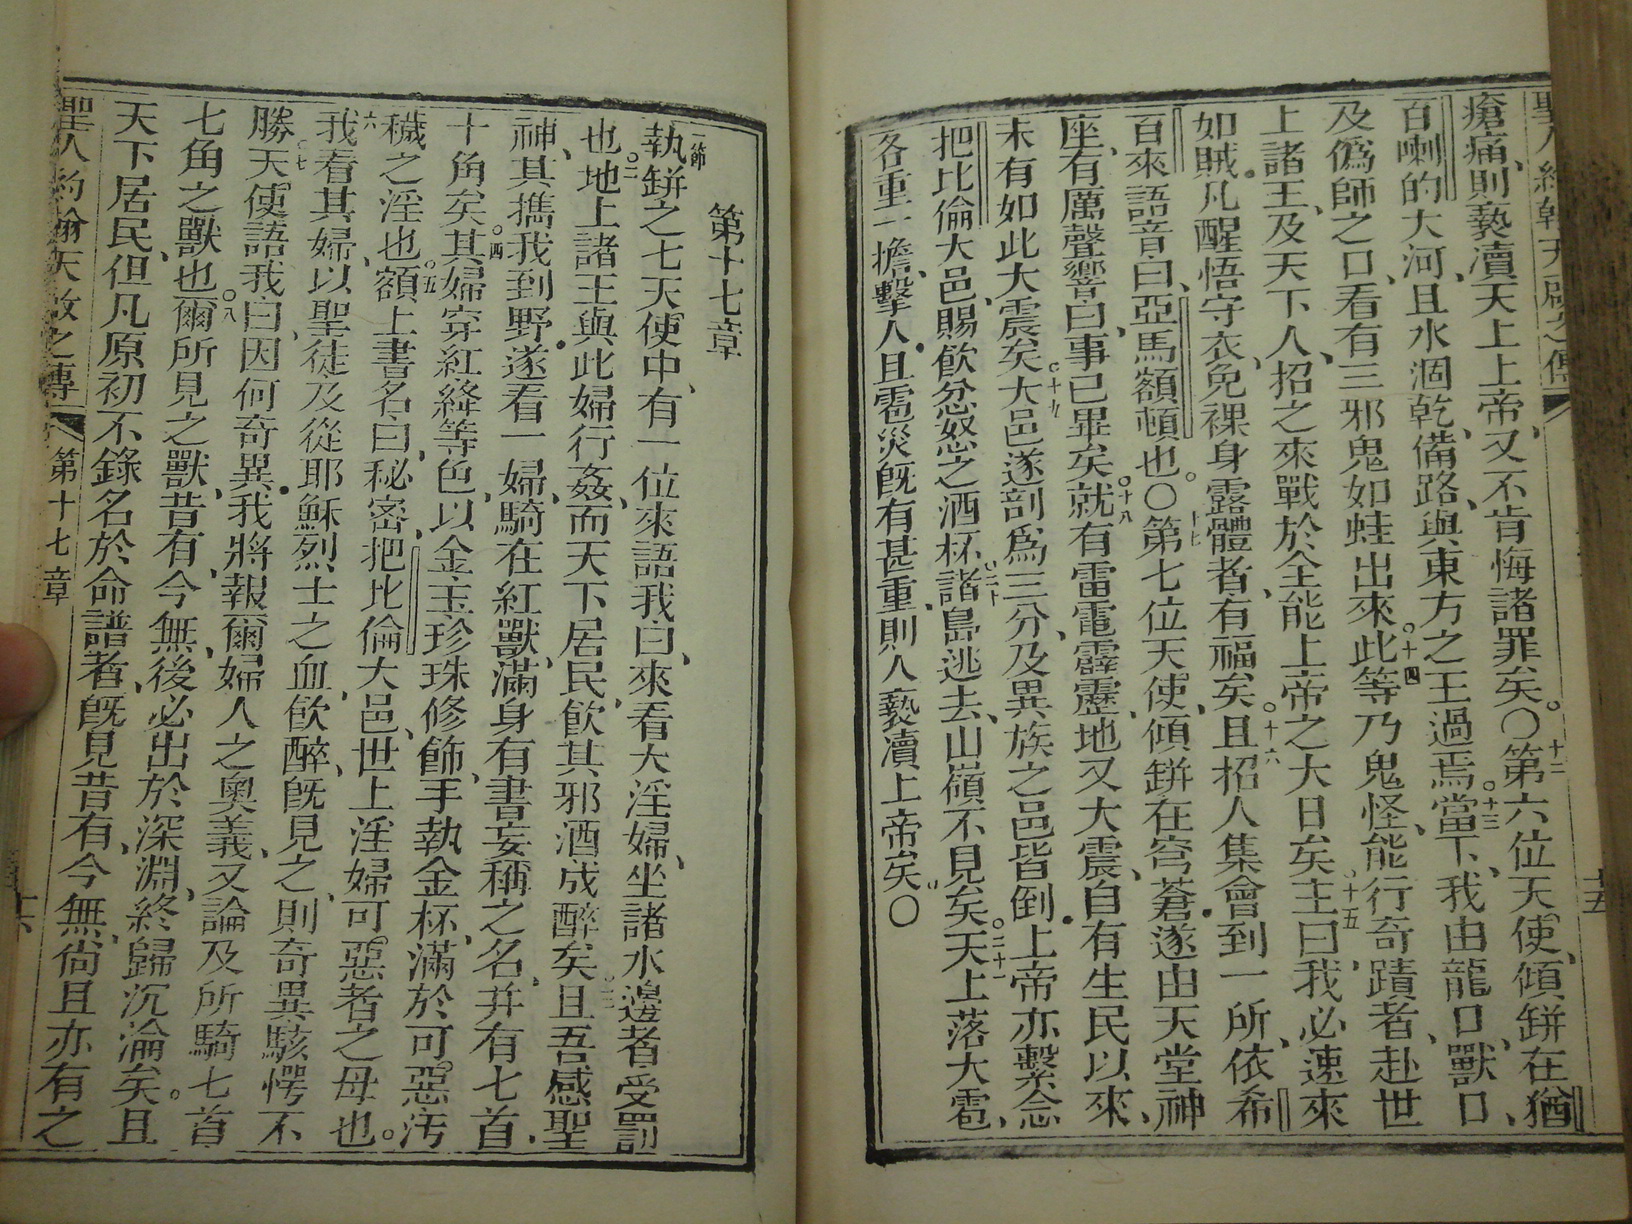 瘡痛、則褻瀆天上上帝、又不肯悔諸罪矣。〇十二第六位天使、傾缾在猶
百喇的大河、且水涸乾、備路與東方之王過焉。十三當下、我由龍口、獸口、
及僞師之口、看有三邪鬼如蛙出來。十四此等乃鬼怪、能行奇蹟者、赴世
上諸王、及天下人、招之來戰於全能上帝之大日矣。十五主曰、我必速來
如賊。凡醒悟守衣、免裸身露體者、有福矣。十六且招人集會到一所、依希
百來語音曰、亞馬額頓也。〇十七第七位天使、傾缾在穹蒼、遂由天堂神
座、有厲聲響曰、事已畢矣。十八就有雷電霹靂、地又大震、自有生民以來、
未有如此大震矣。十九大邑遂剖爲三分、及異族之邑皆倒、上帝亦繫念
把比倫大邑、賜飲忿怒之酒杯。二十諸島逃去、山嶺不見矣。二十一天上落大雹、
各重一擔、擊人、且雹災旣有甚重、則人褻瀆上帝矣。〇
聖人約翰天啟之傳
十五
第十七章
一節執缾之七天使中、有一位來語我曰、來看大淫婦、坐諸水邊者、受罰
也。二地上諸王與此婦行姦、而天下居民、飲其邪酒成醉矣。三且吾感聖
神、其攜我到野、遂看一婦、騎在紅獸、滿身有書妄稱之名、并有七首、
十角矣。四其婦穿紅絳等色、以金玉珍珠修飾、手執金杯、滿於可惡汚
穢之淫也。五額上書名曰、秘密把比倫大邑、世上淫婦可惡者之母也。
六我看其婦、以聖徒及從耶穌烈士之血飲醉、旣見之、則奇異駭愕不
勝。七天使語我曰、因何奇異、我將報爾婦人之奧義、又論及所騎七首
七角之獸也。八爾所見之獸、昔有、今無、後必出於深淵、終歸沉淪矣。且
天下居民、但凡原初不錄名於命譜者、旣見昔有、今無、尙且亦有之
聖人約翰天啟之傳
第十七章
十六